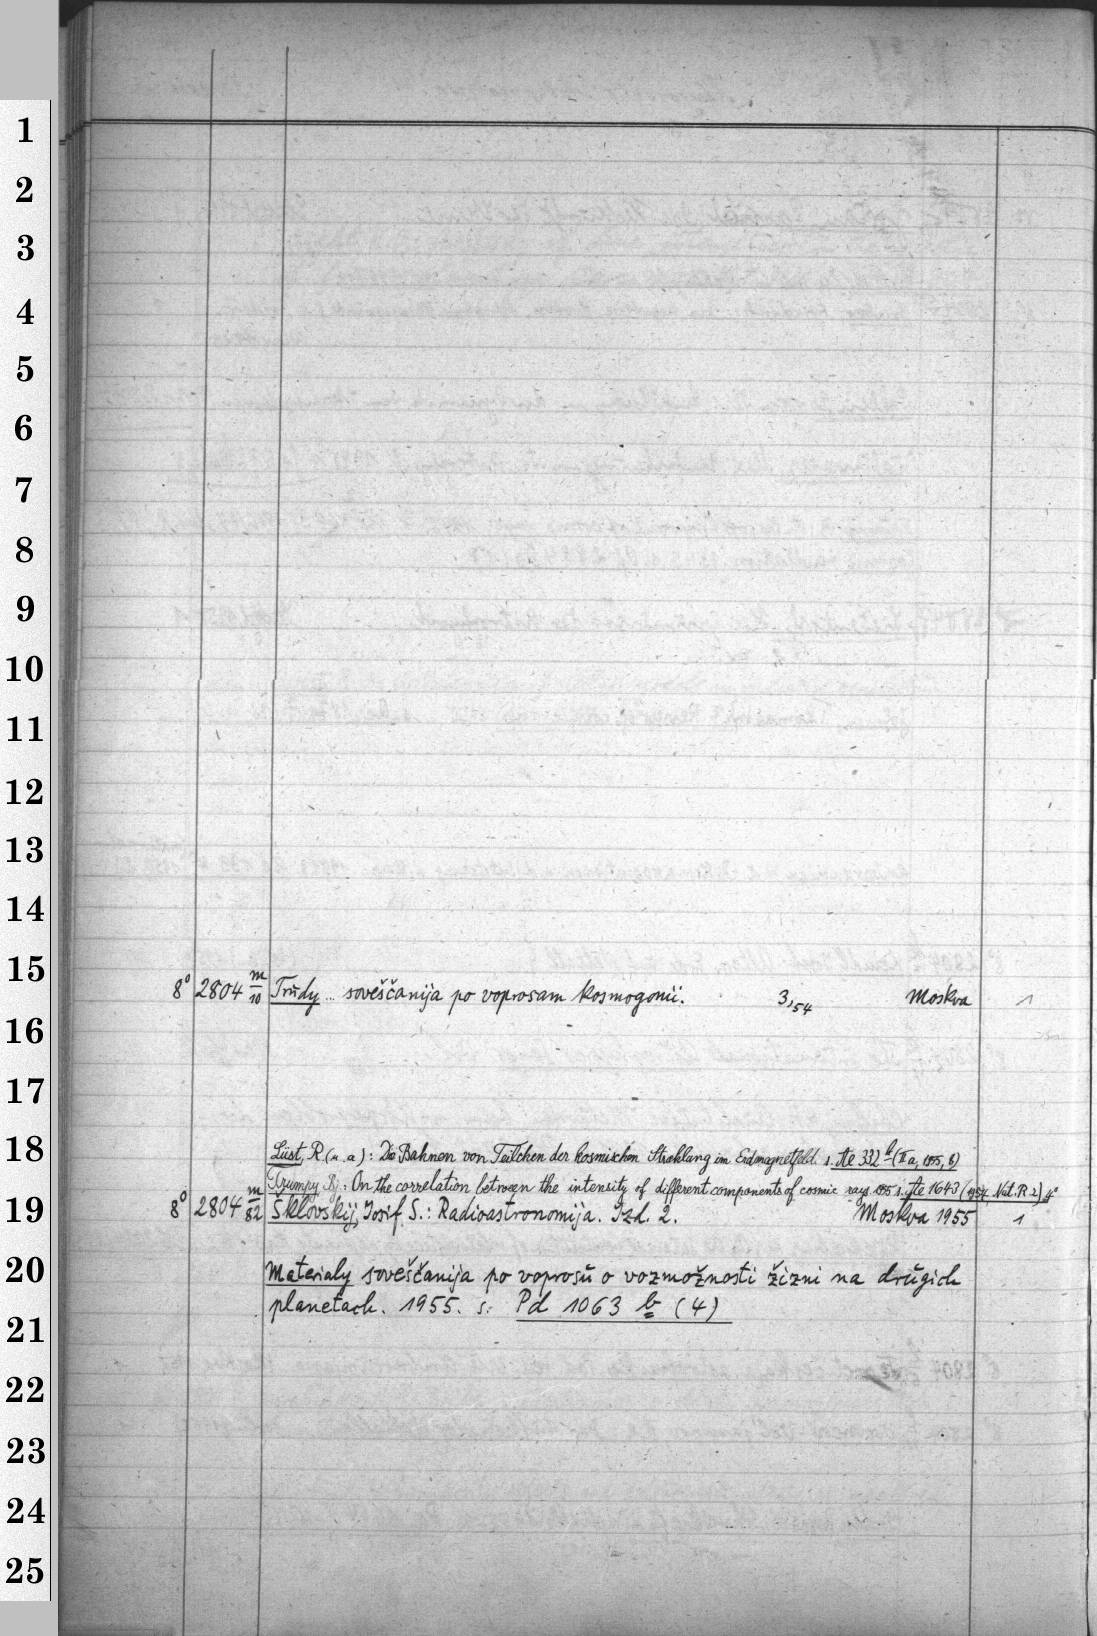 1
2
3
4
5
6
7
8
9
10
11
12
13
14
15
8° 2804 m/10 Trudy ... soveščanija po voprosam kosmogonii. 3,54 Moskva 1
16
17
18
Lüst, R (u. a): Die Bahnen von Teilchen der kosmischen Strahlung im Erdmagnetfeld s. Ae 332 b (IIa, 1955, 6)
Trumpy, Bj.: On the correlation between the intensity of different components of cosmic rays 1955 s. Ae 1643 (1954, Nat. R. 2) 4°
19
8° 2804 m/82 Šklovskij, Iosif S.: Radioastronomija. Izd. 2. Moskva 1955 1
20
Materialy soveščanija po voprosŭ o vozmožnosti žizni na drŭgich
planetach. 1955. s: Pd 1063 b (4)
21
22
23
24
25